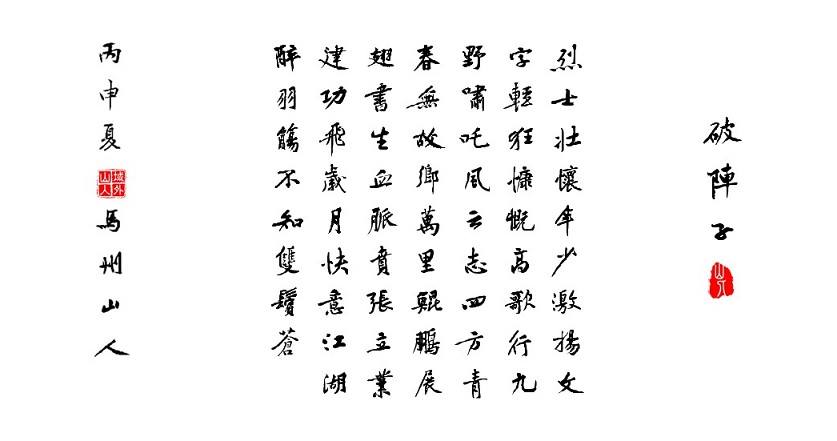 破陣子
山人
烈士壯懷年少激揚文
字輕狂慷慨高歌行九
野嘯吒風云志四方青
春無故鄉萬里鯤鵬展
翅書生血脈賁張立業
建功飛歲月快意江湖
醉羽觴不知雙鬢蒼
丙申夏
域外山人
馬州山人